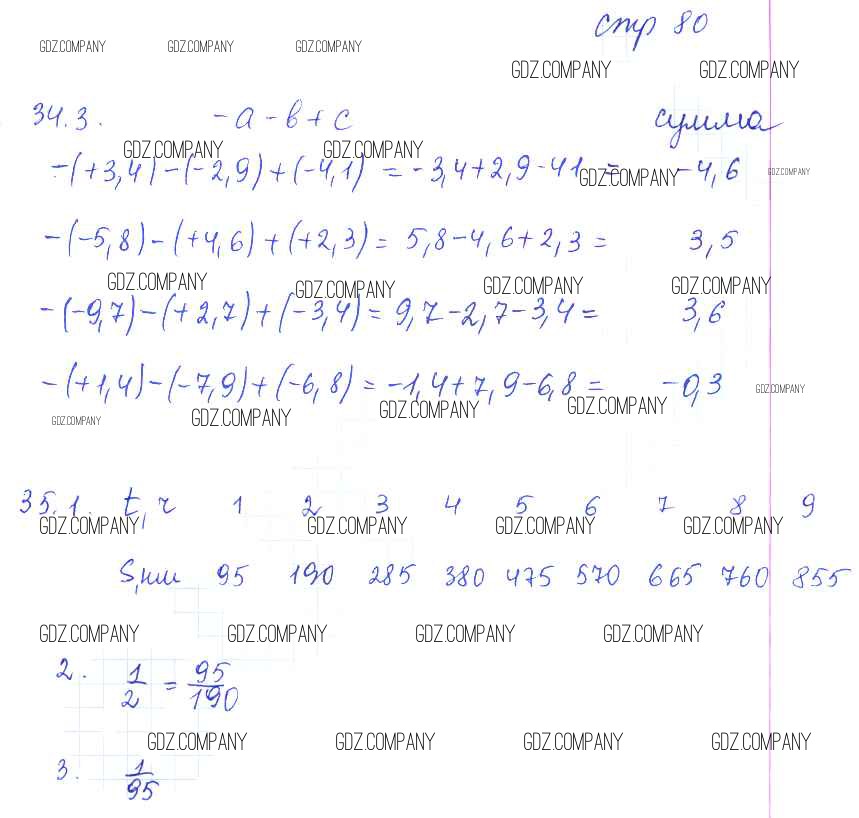 стр 80
GDZ.COMPANY GDZ.COMPANY GDZ.COMPANY
GDZ.COMPANY GDZ.COMPANY
34.3. -a-b+c сумма
GDZ.COMPANY GDZ.COMPANY
-(+3,4)-(-2,9)+(-4,1) = -3,4+2,9-41 = -4,6
GDZ.COMPANY GDZ.COMPANY
-(-5,8)-(+4,6)+(+2,3) = 5,8-4,6+2,3 = 3,5
GDZ.COMPANY GDZ.COMPANY GDZ.COMPANY GDZ.COMPANY
-(-9,7)-(+2,7)+(-3,4) = 9,7-2,7-3,4 = 3,6
-(+1,4)-(-7,9)+(-6,8) = -1,4+7,9-6,8 = -0,3
GDZ.COMPANY GDZ.COMPANY GDZ.COMPANY GDZ.COMPANY GDZ.COMPANY
35.1. t,ч 1 2 3 4 5 6 7 8 9
GDZ.COMPANY GDZ.COMPANY GDZ.COMPANY GDZ.COMPANY
S,км 95 190 285 380 475 570 665 760 855
GDZ.COMPANY GDZ.COMPANY GDZ.COMPANY GDZ.COMPANY
2. 1/2 = 95/190
GDZ.COMPANY GDZ.COMPANY GDZ.COMPANY GDZ.COMPANY
3. 1/95